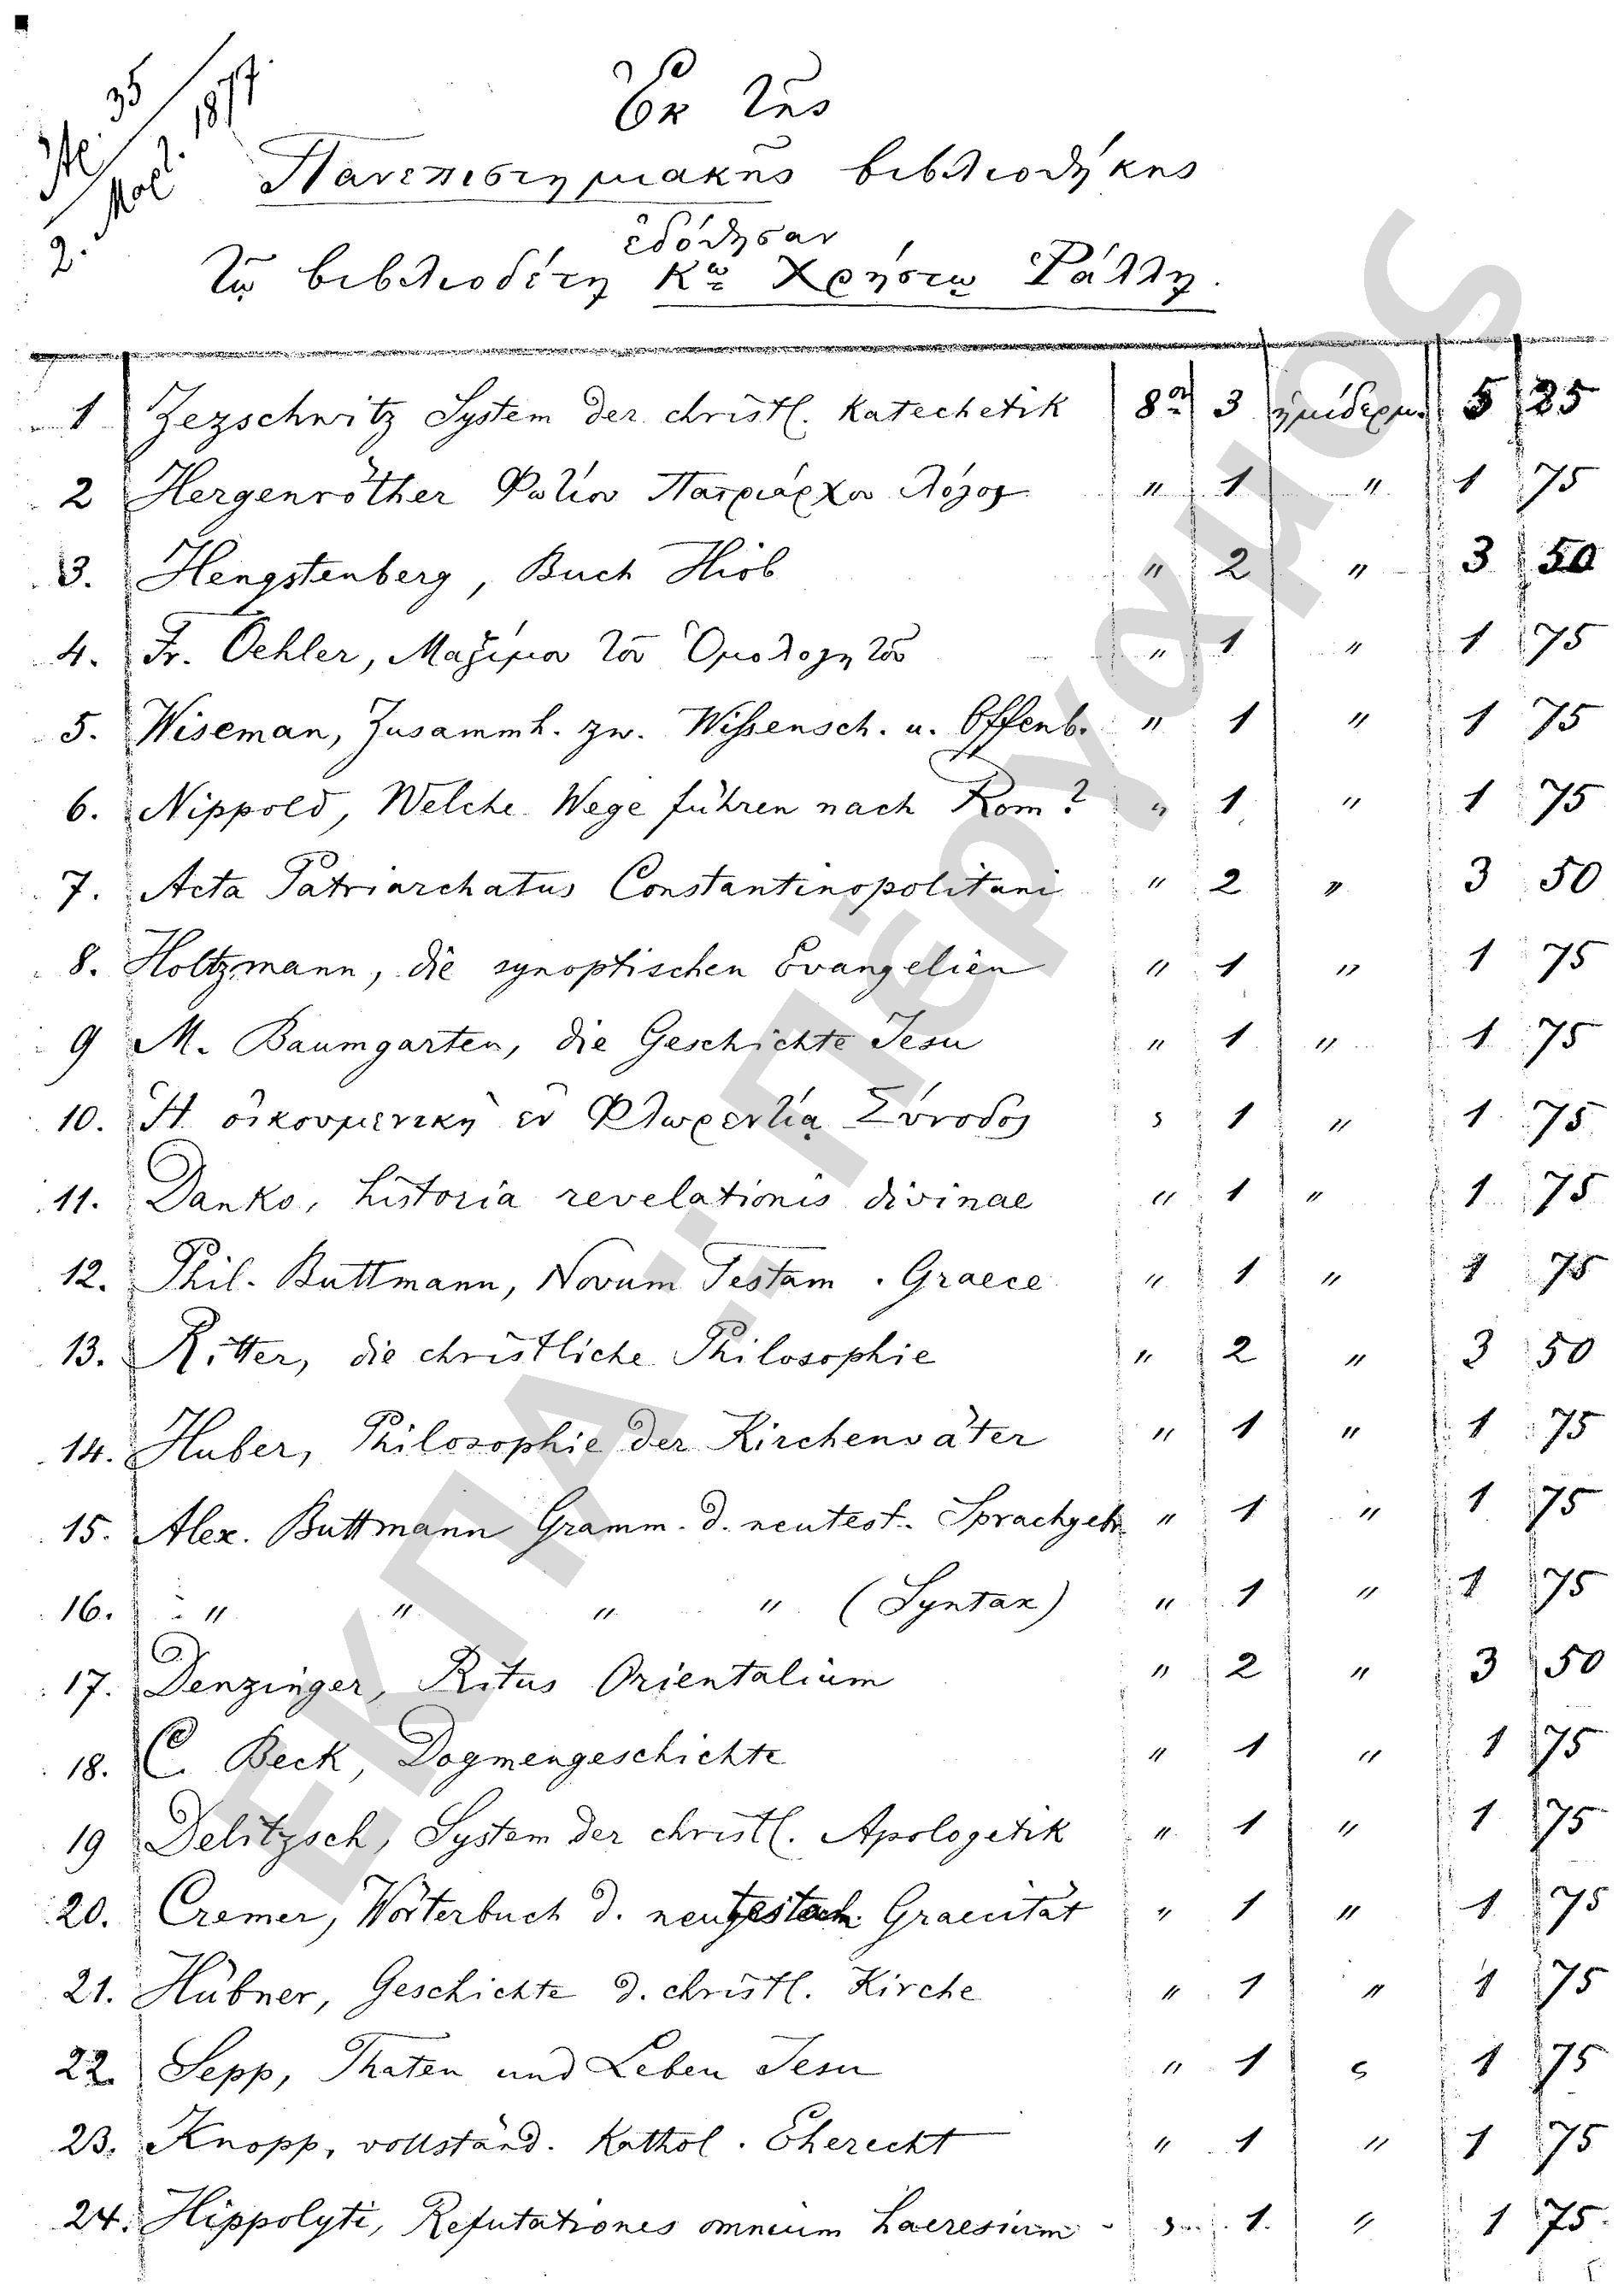 35
1877
Ἐκ τῆς
Πανεπιστημιακῆς βιβλιοθήκης
ἐδόθησαν
τῷ βιβλιοδέτῃ Κῳ Χρήστῳ Ράλλη.
1 Zezschwitz System der christl. Katechetik 8ον 3 ἡμίδερμ. 5 25
2 Hergenröther Φωτίου Πατριάρχου Λόγος " 1 " 1 75
3. Hengstenberg, Buch Hiob " 2 " 3 50
4. Fr. Oehler, Μαξίμου τοῦ Ὁμολογητοῦ " 1 " 1 75
5. Wiseman, Zusammh. zw. Wissensch. u. Offenb. " 1 " 1 75
6. Nippold, Welche Wege führen nach Rom? " 1 " 1 75
7. Acta Patriarchatus Constantinopolitani " 2 " 3 50
8. Holtzmann, die synoptischen Evangelien " 1 " 1 75
9 M. Baumgarten, die Geschichte Jesu " 1 " 1 75
10. Ἡ οἰκουμενικὴ ἐν Φλωρεντίᾳ Σύνοδος " 1 " 1 75
11. Danko, historia revelationis divinae " 1 " 1 75
12. Phil. Buttmann, Novum Testam. Graece " 1 " 1 75
13. Ritter, die christliche Philosophie " 2 " 3 50
14. Huber, Philosophie der Kirchenväter " 1 " 1 75
15. Alex. Buttmann Gramm. d. neutest. Sprachgeb. " 1 " 1 75
16. " " " " (Syntax) " 1 " 1 75
17. Denzinger, Ritus Orientalium " 2 " 3 50
18. C. Beck, Dogmengeschichte " 1 " 1 75
19 Delitzsch, System der christl. Apologetik " 1 " 1 75
20. Cremer, Wörterbuch d. neutestam. Graecität " 1 " 1 75
21. Hübner, Geschichte d. christl. Kirche " 1 " 1 75
22. Sepp, Thaten und Leben Jesu " 1 " 1 75
23. Knopp, vollständ. Kathol. Eherecht " 1 " 1 75
24. Hippolyti, Refutationes omnium haeresium " 1. " 1 75
ΕΚΠΑ - Πέργαμος